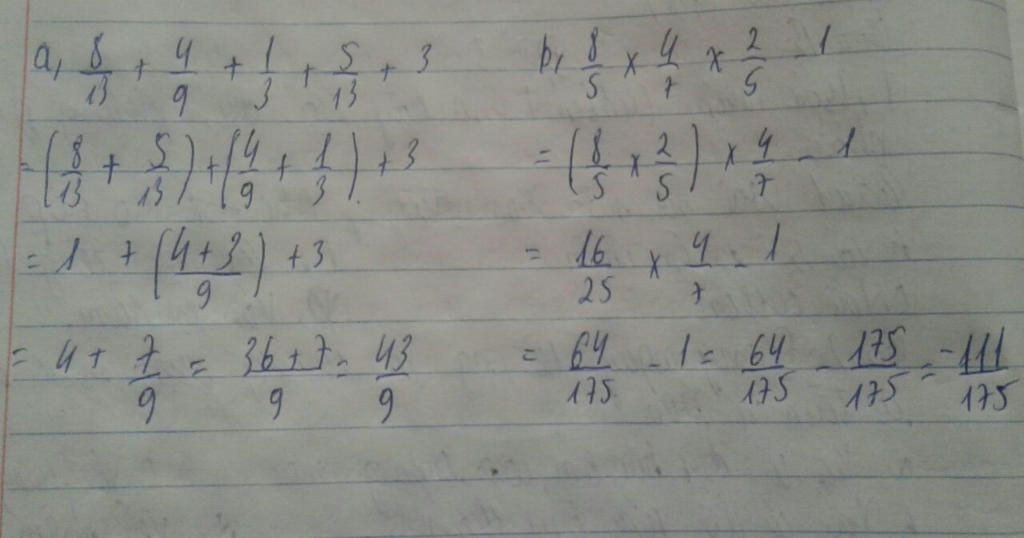 a, 8/13 + 4/9 + 1/3 + 5/13 + 3
= (8/13 + 5/13) + (4/9 + 1/3) + 3
= 1 + (4+3/9) + 3
= 4 + 7/9 = 36+7/9 = 43/9
b, 8/5 x 4/7 x 2/5 - 1
= (8/5 x 2/5) x 4/7 - 1
= 16/25 x 4/7 - 1
= 64/175 - 1 = 64/175 - 175/175 = -111/175